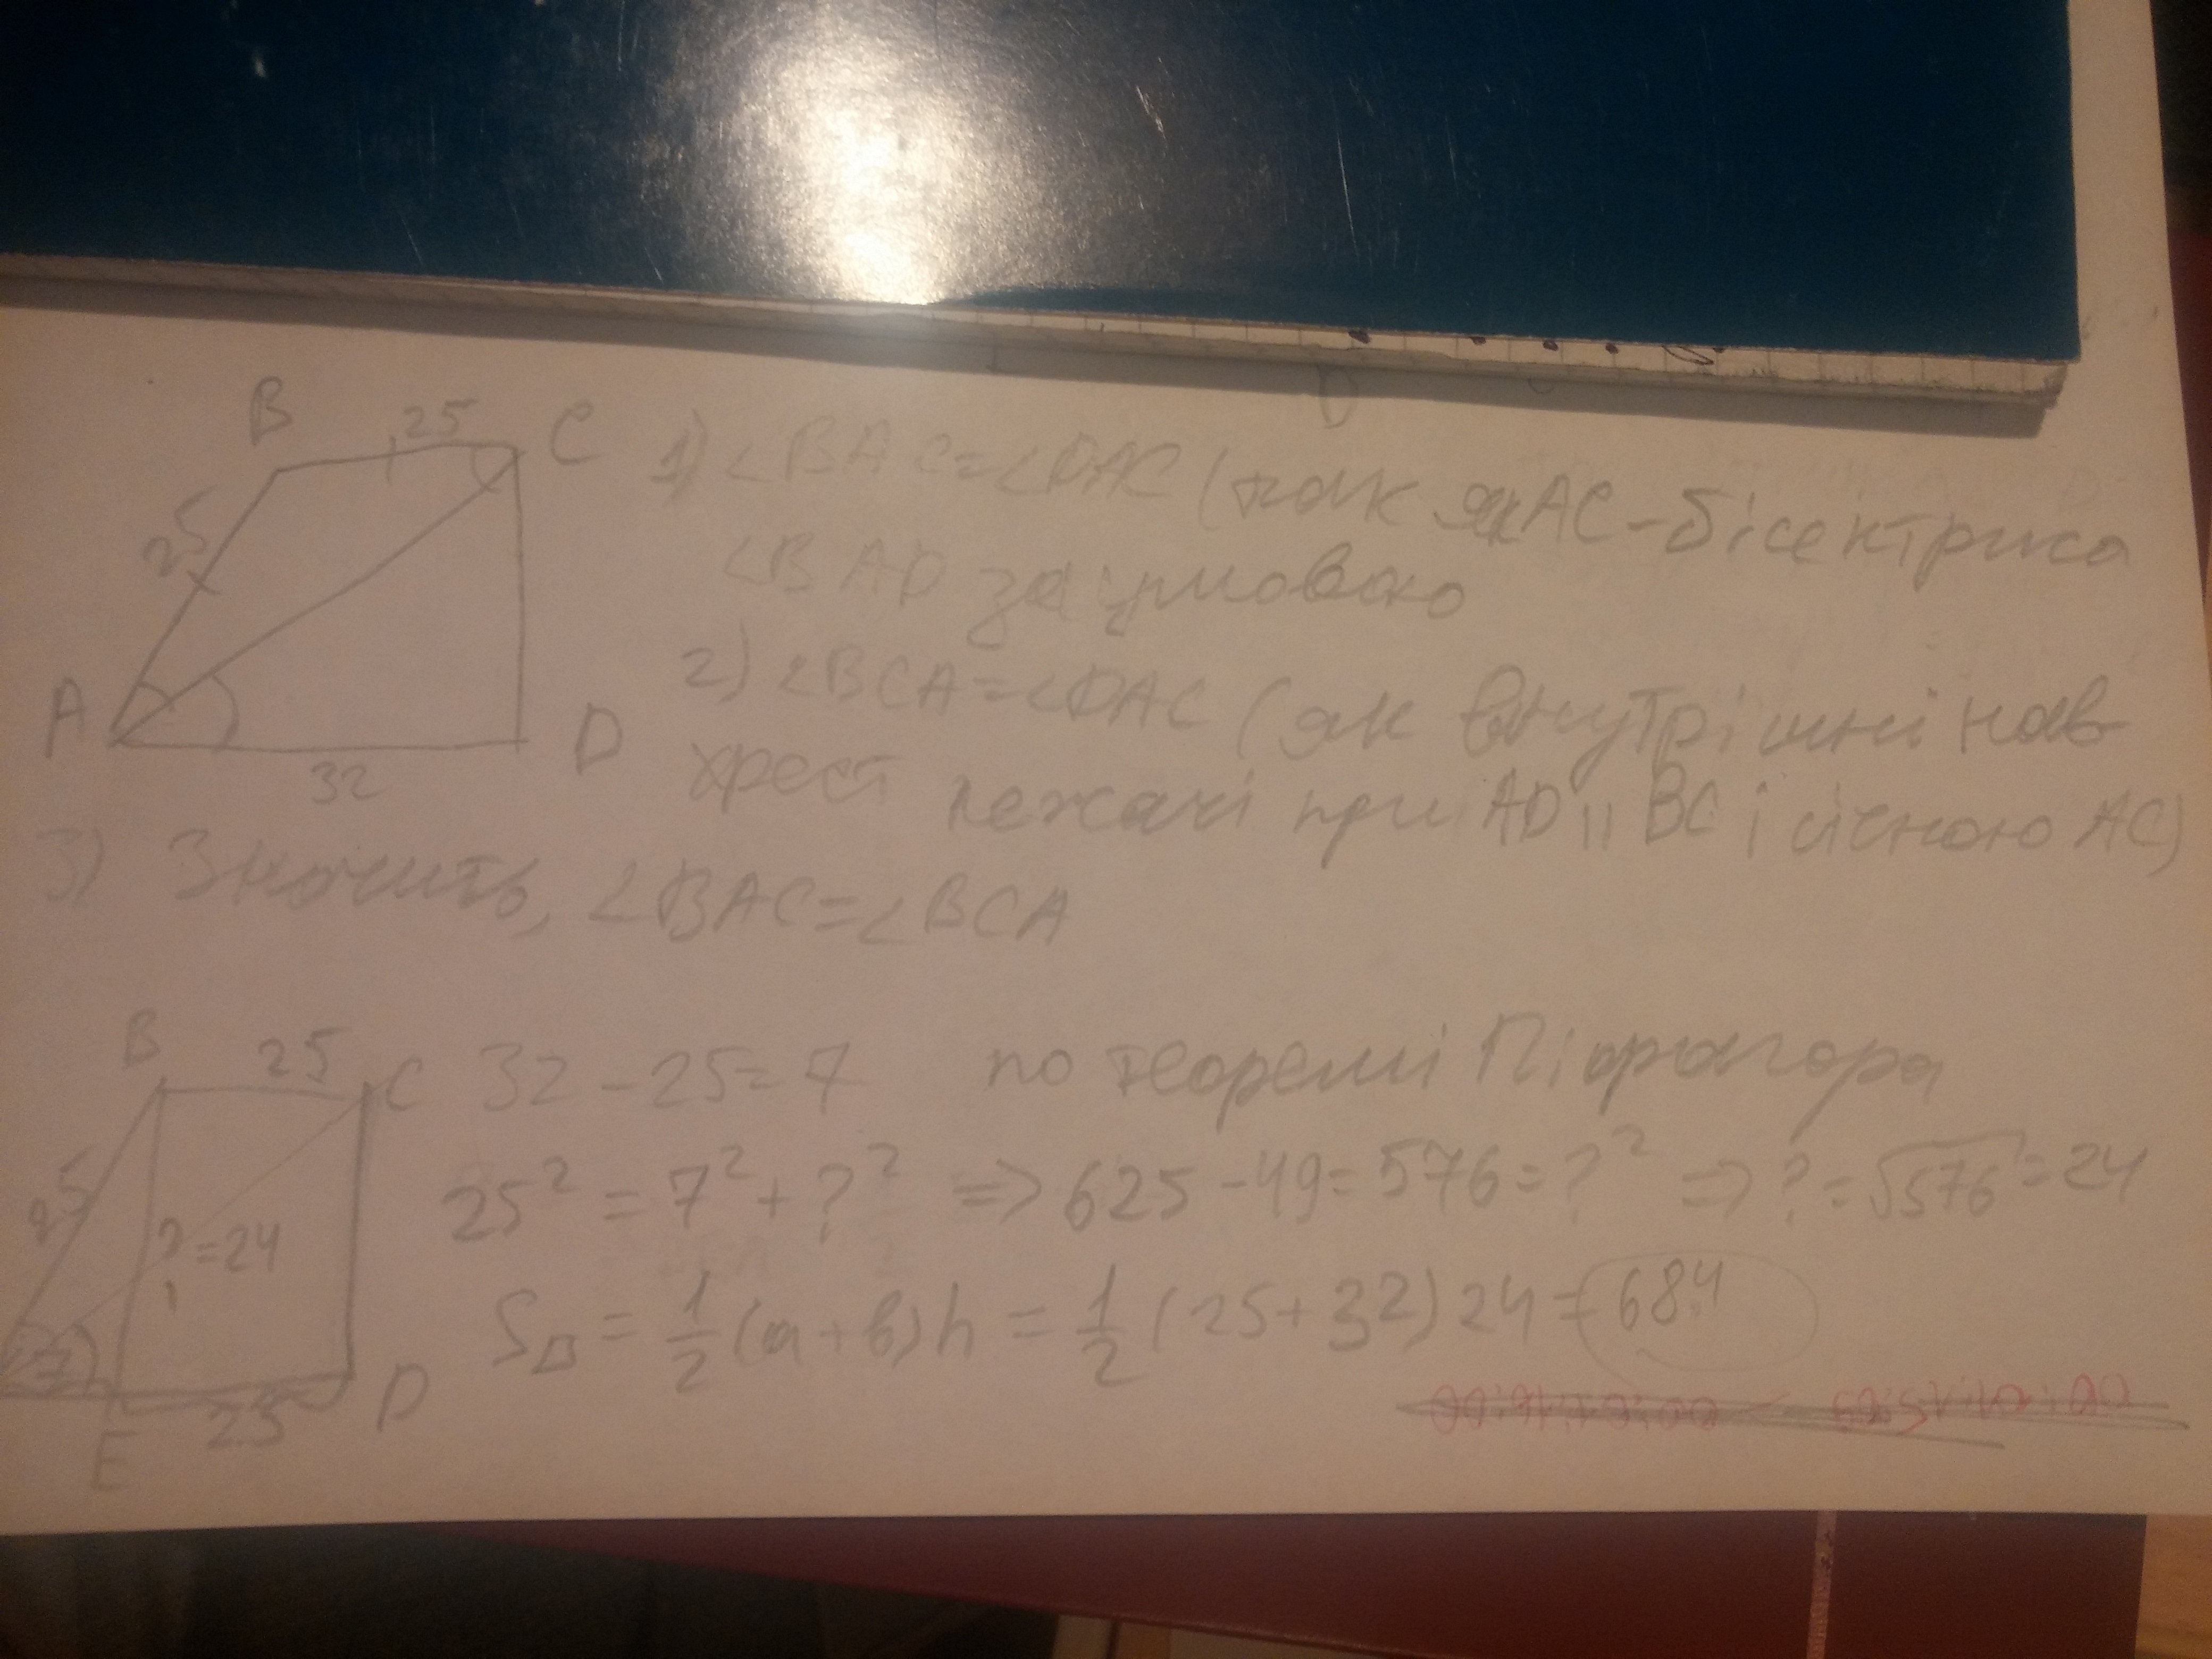 B 25 C
25
A 32 D
1) ∠BAC=∠DAC (так як AC-бісектриса
∠BAD за умовою
2) ∠BCA=∠DAC (як внутрішні нав
хрест лежачі при AD || BC і січною AC)
3) Значить, ∠BAC=∠BCA
B 25 C
25
?=24
7
E 25 D
32-25=7 по теоремі Піфагора
25² = 7² + ?² => 625-49=576=?² => ?=√576=24
S = 1/2 (a+b)h = 1/2 (25+32)24=684